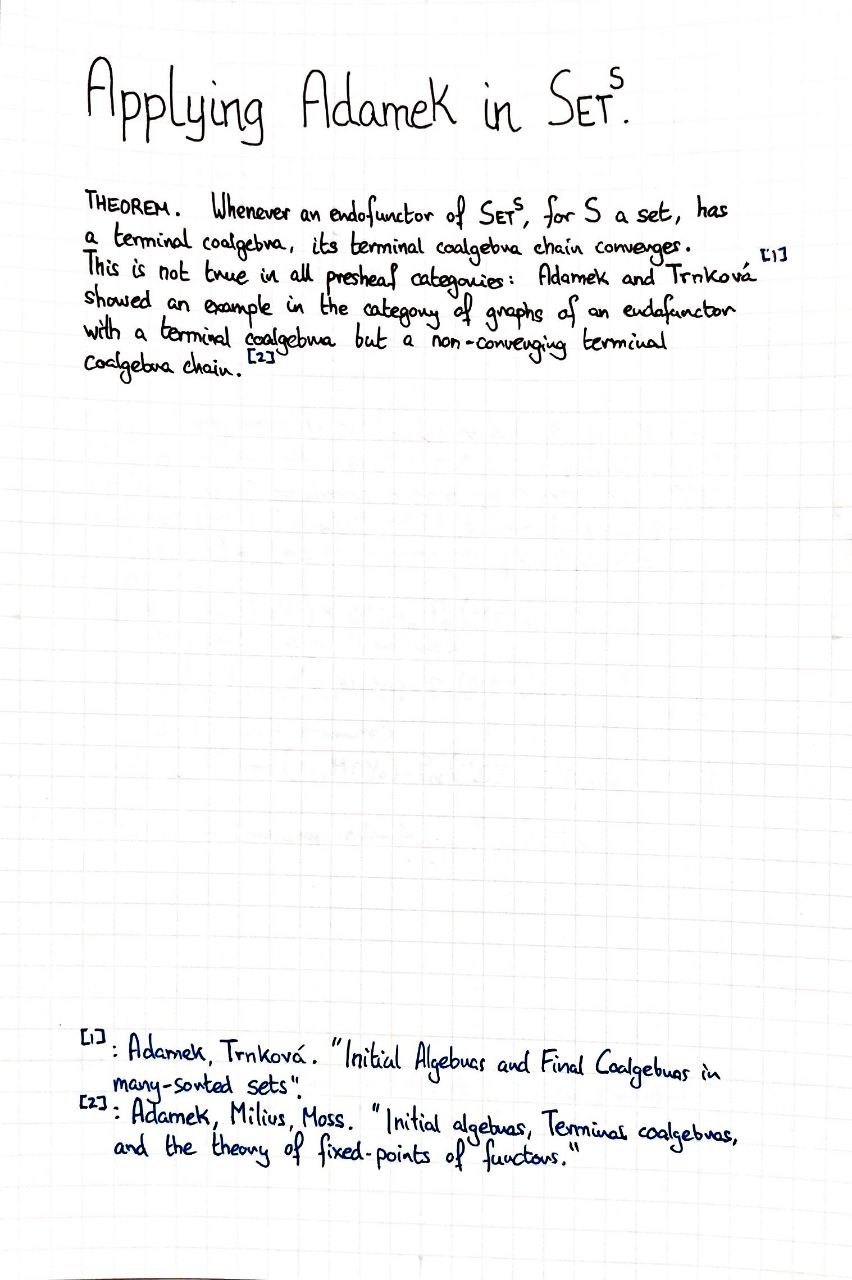 Applying Adamek in SETˢ.
THEOREM. Whenever an endofunctor of SETˢ, for S a set, has
a terminal coalgebra, its terminal coalgebra chain converges.
This is not true in all presheaf categories: Adamek and Trnková [1]
showed an example in the category of graphs of an endofunctor
with a terminal coalgebra but a non-converging terminal
coalgebra chain. [2]
[1]: Adamek, Trnková. "Initial Algebras and Final Coalgebras in
many-sorted sets".
[2]: Adamek, Milius, Moss. "Initial algebras, Terminal coalgebras,
and the theory of fixed-points of functors."